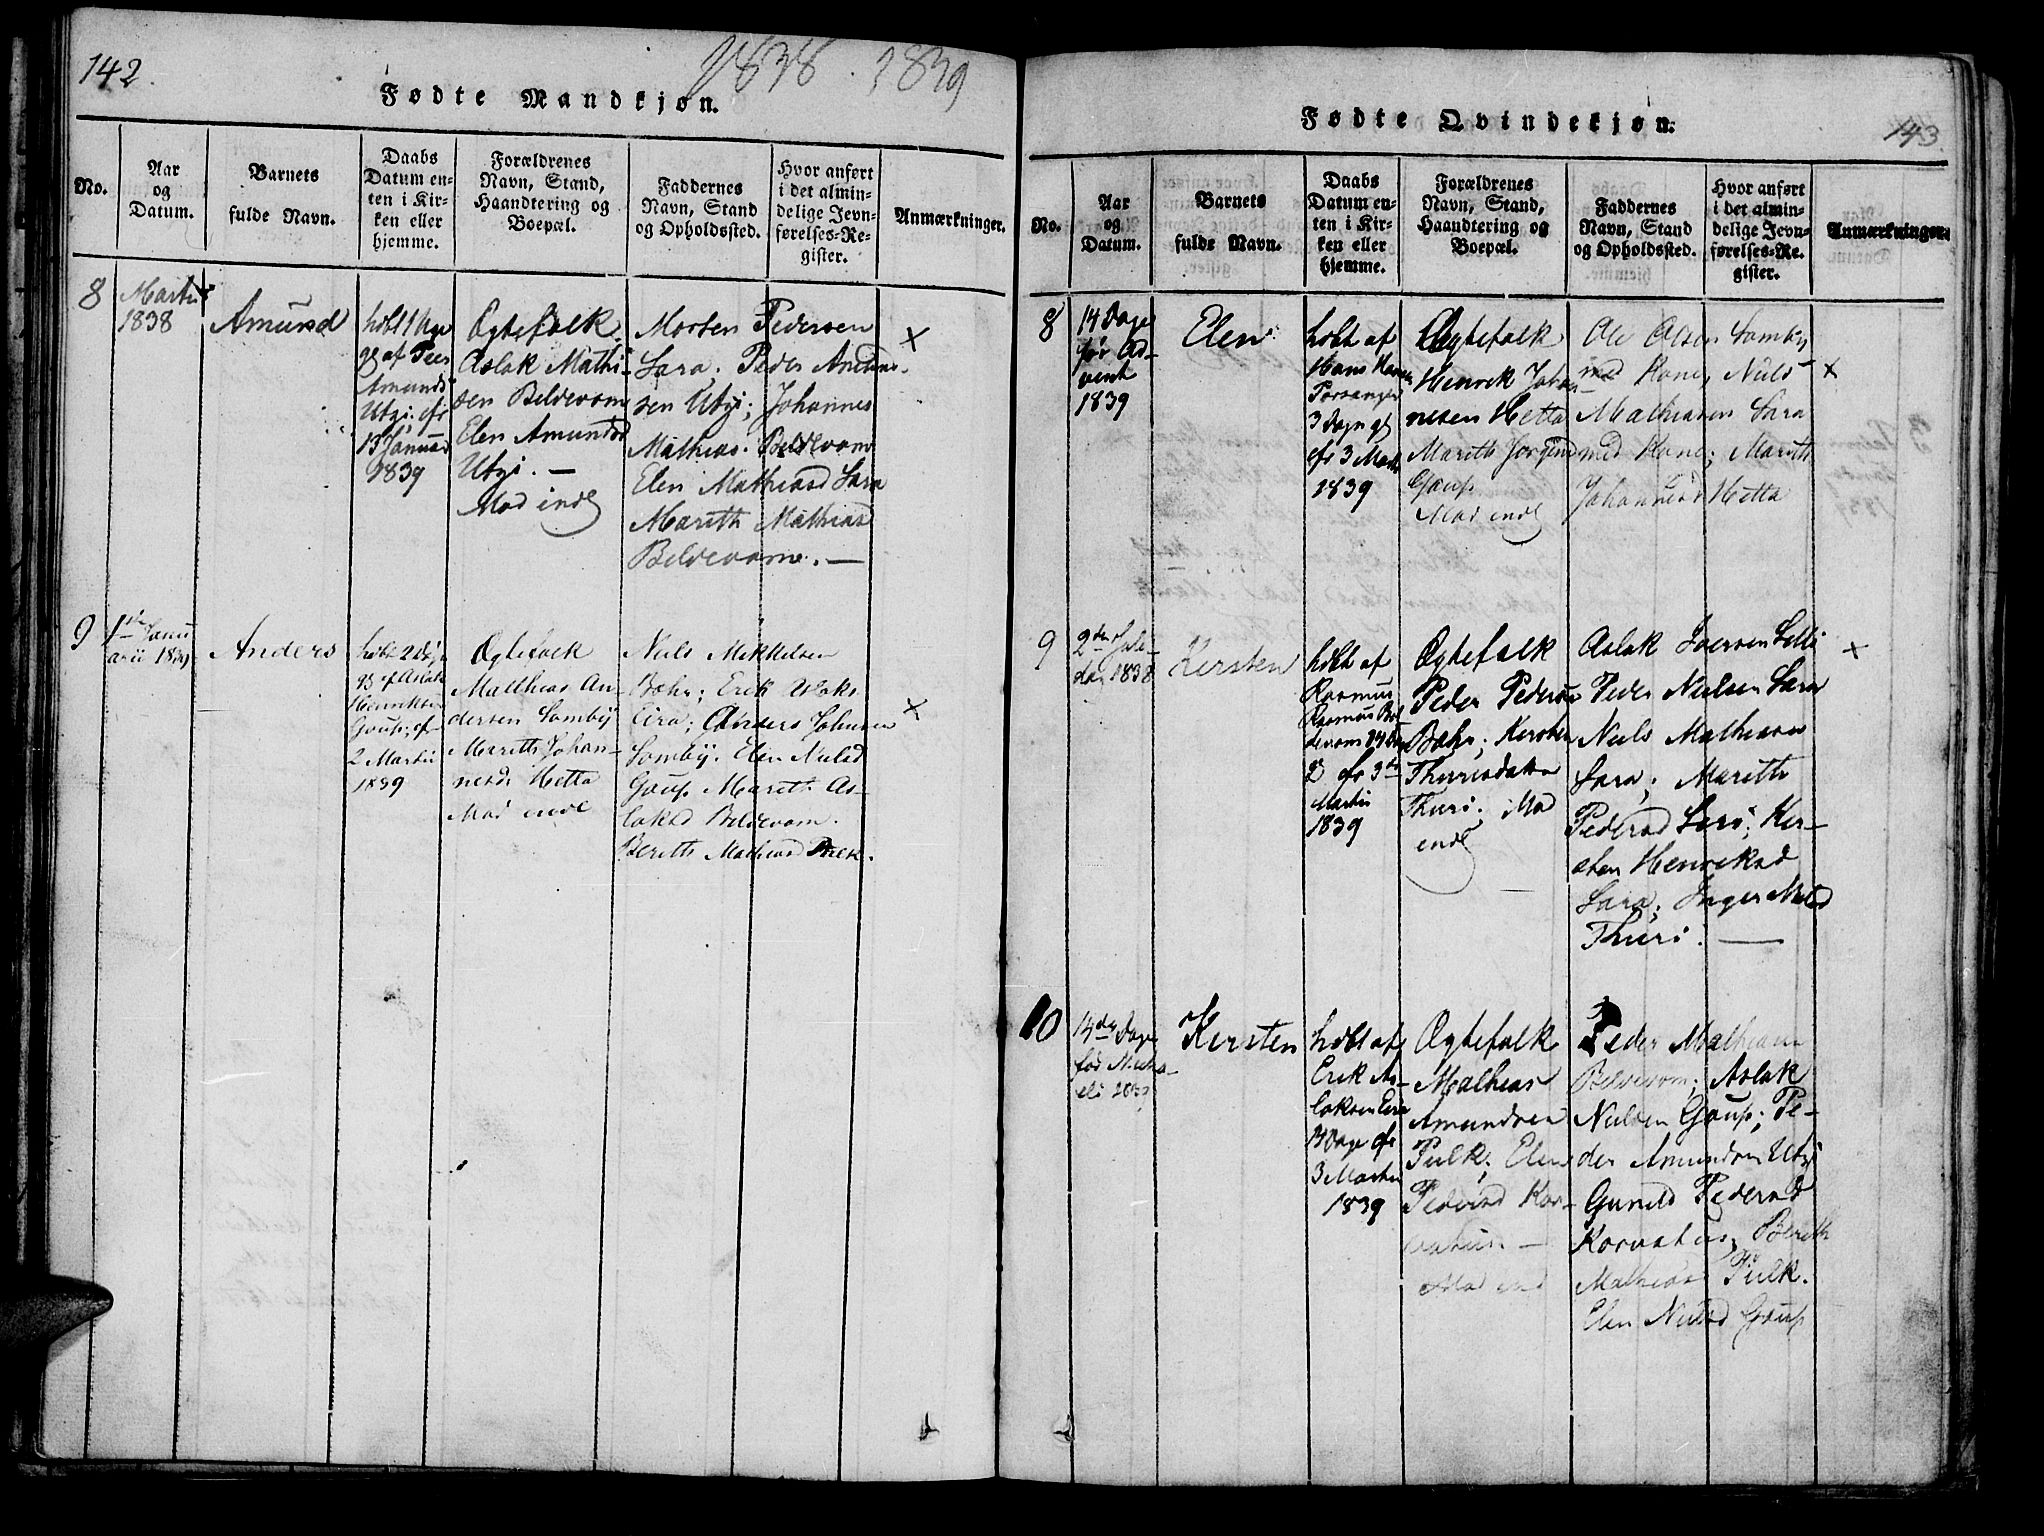 142.
1838. 1839
Fødte Mandkjøn.
No.
Aar
og
Datum.
Barnets
fulde Navn.
Daabs
Datum en-
ten i Kir-
ken eller
hjemme.
Forældrenes
Navn, Stand,
Haandtering og
Boepæl.
Faddernes
Navn, Stand
og Opholdssted.
Hvor anført
i det almin-
delige Jevn-
førelses-Re-
gister.
Anmærkninger.
8
Martii
1838
Amund
hdbt 1 Uge
gl af Peer
Amunds
Utzi; cfr
13 Januar
1839
Ægtefolk
Aslak Mathi-
sen Beldevom
Elen Amundsd
Utzi. —
Mod indl
Morten Pedersen
Sara. Peder Amund-
sen Utzi; Johannes
Mathias. Beldevom
Elen Mathiasd Sara
Marith Mathiasd
Beldevom. —
×
9
1ste Janu
arii 1839
Anders
hdbt 2 Dage
gl af Aslak
Henriksen
Goup; cfr
2 Martii
1839
Ægtefolk
Matthias An-
dersen Somby
Marith Johan-
nesdr Hetta
Mod indl
Niels Mikkelsen
Bæhr; Erik Aslaks
Eira; Anders Johnsen
Somby. Elen Nielsd
Goup Marith As-
laksd Beldevom.
Berith Mathiasd Pulk.
×
143.
Fødte Qvindekjøn.
No.
Aar
og
Datum.
Barnets
fulde Navn.
Daabs
Datum en-
ten i Kir-
ken eller
hjemme.
Forældrenes
Navn, Stand,
Haandtering og
Boepæl.
Faddernes
Navn, Stand
og Opholdssted.
Hvor anført
i det almin-
delige Jevn-
førelses-Re-
gister.
Anmærkninger.
8
14 Dage
før Ad-
vent
1839
Elen
hdbt af
Hans Hansen
Porsanger
3 Dage gl
cfr 3 Mart
1839
Ægtefolk
Henrik Johan-
nesen Hetta
Marith Jørgensd
Goup
Mod indl
Ole Olsen Somby
med Kone, Niels
Mathiasen Sara
med Kone; Marith
Johannesd Hetta
×
9
2den Jule-
dag 1838
Kersten
hdbt af
Rasmus
Rasmus Bel-
devom 14 Dage
gl cfr 3die
Martii
1839
Ægtefolk
Peder Pedersen
Bæhr; Kersten
Thuresdatter
Thuri. Mod
indl
Aslak Iversen
Peder Nielsen Sara
Niels Mathiasen
Sara; Marith
Pedersd Sara; Ker-
sten Henriksd
Sara; Inger Nielsd
Thuri. —
×
10
14den Dage
før Micha-
eli 1838
Kersten
hdbt af
Erik As-
laksen Eira
3 Dage cfr
3 Martii
1839
Ægtefolk
Mathias
Amundsen
Pulk; Elen
Pedersd Kor-
—
Mod ind
Peder Mathiasen
Beldevom; Aslak
Nielsen Goup; Pe-
der Amundsen Utzi
Guneld Pedersd
Korvatus; Berith
Mathiasd Pulk.
Elen Nielsd Goup